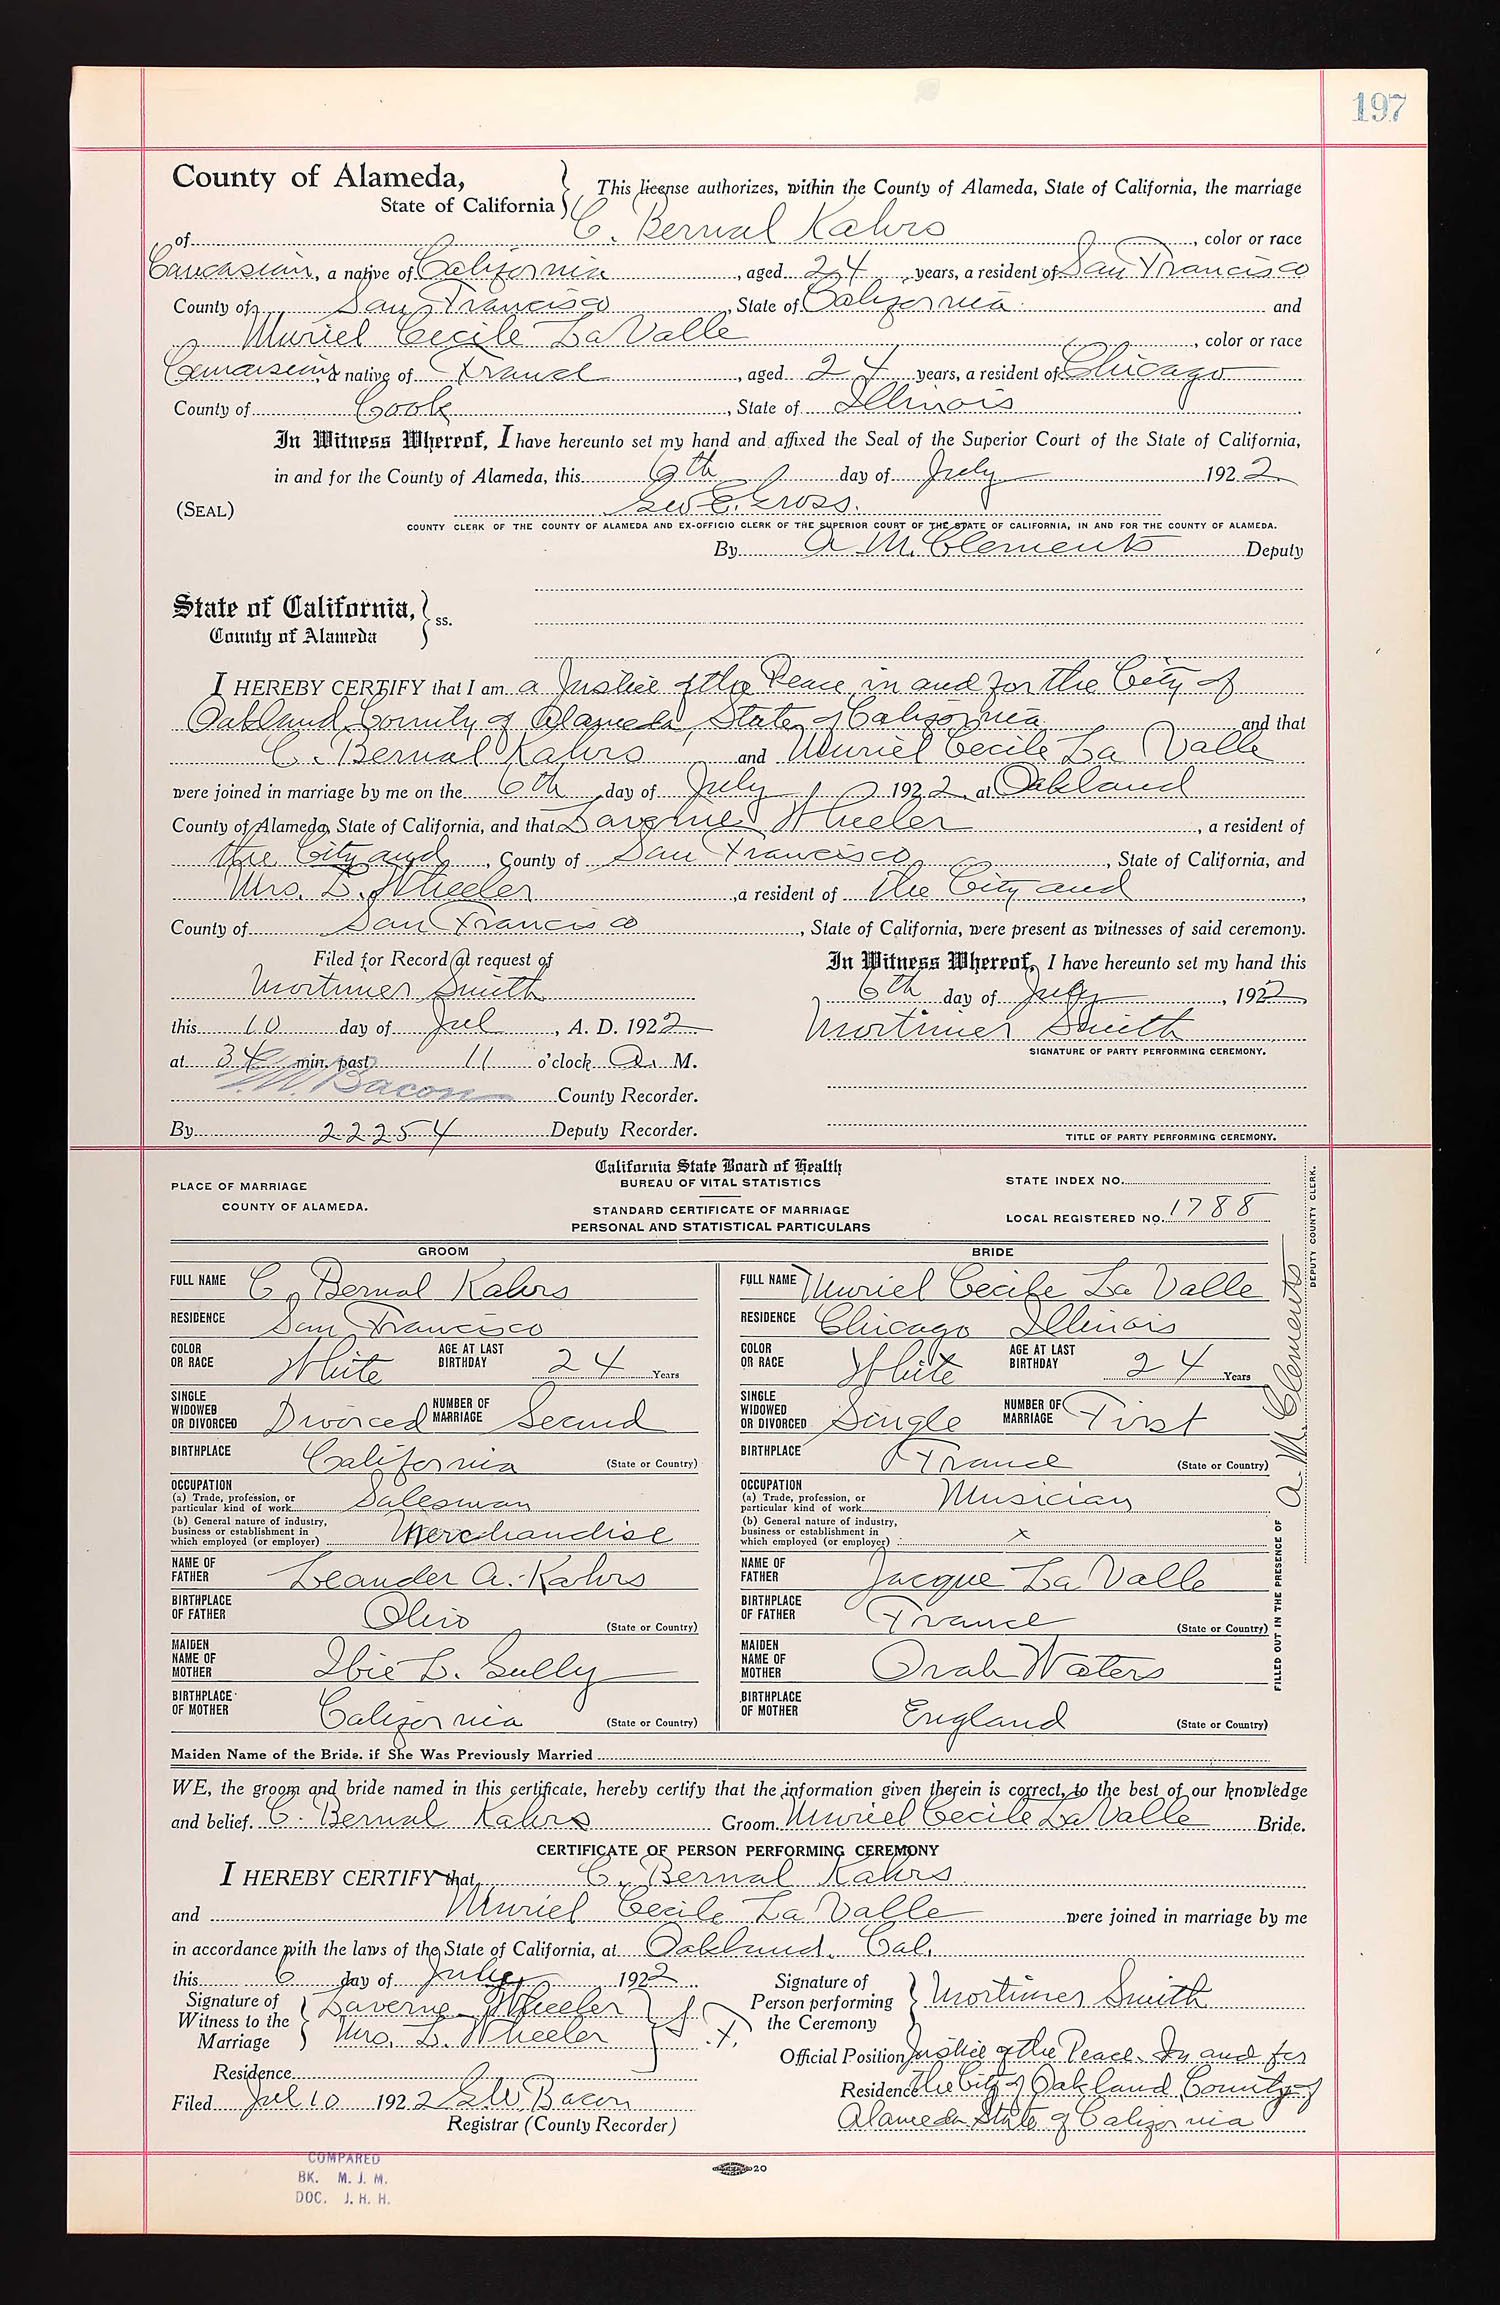 197
County of Alameda,
State of California
This license authorizes, within the County of Alameda, State of California, the marriage
of C. Bernal Kahrs, color or race
Caucasian, a native of California, aged 24 years, a resident of San Francisco
County of San Francisco, State of California and
Muriel Cecile La Valle, color or race
Caucasian, a native of France, aged 24 years, a resident of Chicago
County of Cook, State of Illinois.
In Witness Whereof, I have hereunto set my hand and affixed the Seal of the Superior Court of the State of California,
in and for the County of Alameda, this 6th day of July 1922.
(SEAL) Geo E. Gross.
COUNTY CLERK OF THE COUNTY OF ALAMEDA AND EX-OFFICIO CLERK OF THE SUPERIOR COURT OF THE STATE OF CALIFORNIA, IN AND FOR THE COUNTY OF ALAMEDA.
By A. M. Clements Deputy
State of California,
County of Alameda
ss.
I HEREBY CERTIFY that I am a Justice of the Peace in and for the City of
Oakland, County of Alameda, State of California and that
C. Bernal Kahrs and Muriel Cecile La Valle
were joined in marriage by me on the 6th day of July 1922, at Oakland
County of Alameda, State of California, and that Laverne Wheeler, a resident of
the City and, County of San Francisco, State of California, and
Mrs. L. Wheeler, a resident of The City and,
County of San Francisco, State of California, were present as witnesses of said ceremony.
Filed for Record at request of
Mortimer Smith
this 10 day of Jul, A. D. 1922
at 34 min. past 11 o'clock A. M.
G.W. Bacon County Recorder.
By 22254 Deputy Recorder.
In Witness Whereof, I have hereunto set my hand this
6th day of July, 1922
Mortimer Smith
SIGNATURE OF PARTY PERFORMING CEREMONY.
TITLE OF PARTY PERFORMING CEREMONY.
PLACE OF MARRIAGE
COUNTY OF ALAMEDA.
California State Board of Health
BUREAU OF VITAL STATISTICS
STANDARD CERTIFICATE OF MARRIAGE
PERSONAL AND STATISTICAL PARTICULARS
STATE INDEX NO.
LOCAL REGISTERED NO. 1788
GROOM
FULL NAME C. Bernal Kahrs
RESIDENCE San Francisco
COLOR OR RACE White AGE AT LAST BIRTHDAY 24 Years
SINGLE WIDOWED OR DIVORCED Divorced NUMBER OF MARRIAGE Second
BIRTHPLACE California (State or Country)
OCCUPATION
(a) Trade, profession, or particular kind of work Salesman
(b) General nature of industry, business or establishment in which employed (or employer) Merchandise
NAME OF FATHER Leander A. Kahrs
BIRTHPLACE OF FATHER Ohio (State or Country)
MAIDEN NAME OF MOTHER Ibie L. Gully
BIRTHPLACE OF MOTHER California (State or Country)
BRIDE
FULL NAME Muriel Cecile La Valle
RESIDENCE Chicago Illinois
COLOR OR RACE White AGE AT LAST BIRTHDAY 24 Years
SINGLE WIDOWED OR DIVORCED Single NUMBER OF MARRIAGE First
BIRTHPLACE France (State or Country)
OCCUPATION
(a) Trade, profession, or particular kind of work Musician
(b) General nature of industry, business or establishment in which employed (or employer) x
NAME OF FATHER Jacque La Valle
BIRTHPLACE OF FATHER France (State or Country)
MAIDEN NAME OF MOTHER Orah Waters
BIRTHPLACE OF MOTHER England (State or Country)
FILLED OUT IN THE PRESENCE OF A. M. Clements DEPUTY COUNTY CLERK.
Maiden Name of the Bride, if She Was Previously Married
WE, the groom and bride named in this certificate, hereby certify that the information given therein is correct, to the best of our knowledge
and belief. C. Bernal Kahrs Groom. Muriel Cecile La Valle Bride.
CERTIFICATE OF PERSON PERFORMING CEREMONY
I HEREBY CERTIFY that C. Bernal Kahrs
and Muriel Cecile La Valle were joined in marriage by me
in accordance with the laws of the State of California, at Oakland, Cal.
this 6 day of July 1922
Signature of Witness to the Marriage
Laverne Wheeler
Mrs. L. Wheeler
S.F.
Residence
Filed Jul 10 1922 G.W. Bacon
Registrar (County Recorder)
Signature of Person performing the Ceremony Mortimer Smith
Official Position Justice of the Peace. In and for
Residence the City of Oakland, County of
Alameda State of California
COMPARED
BK. M. J. M.
DOC. J. H. H.
20